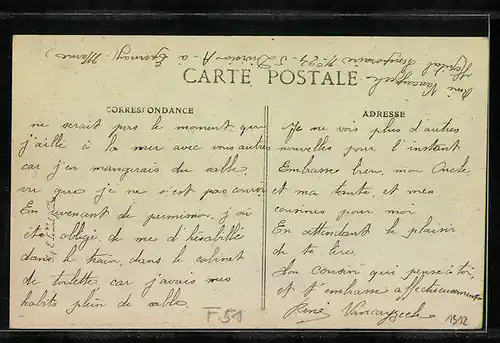 René Vancuyseele
Hôpital Temporaire N° 23 - 5e Division - A - à Epernay (Marne)
CARTE POSTALE
CORRESPONDANCE
ne serait pas le moment que
j'aille à la mer avec vous autres
car j'en mangerais du sable,
vu que je ne s'est pas courir
En revenant de permission, j'ai
été obligé de me déshabillé
dans le train, dans le cabinet
de toilette, car j'avais mes
habits plein de sable.
ADRESSE
Je ne vois plus d'autres
nouvelles pour l'instant
Embrasse bien, mon Oncle
et ma tante et mes
cousines pour moi
En attendant le plaisir
de te lire.
Ton cousin qui pense à toi,
et t'embrasse affectueusement
René
F51
1512